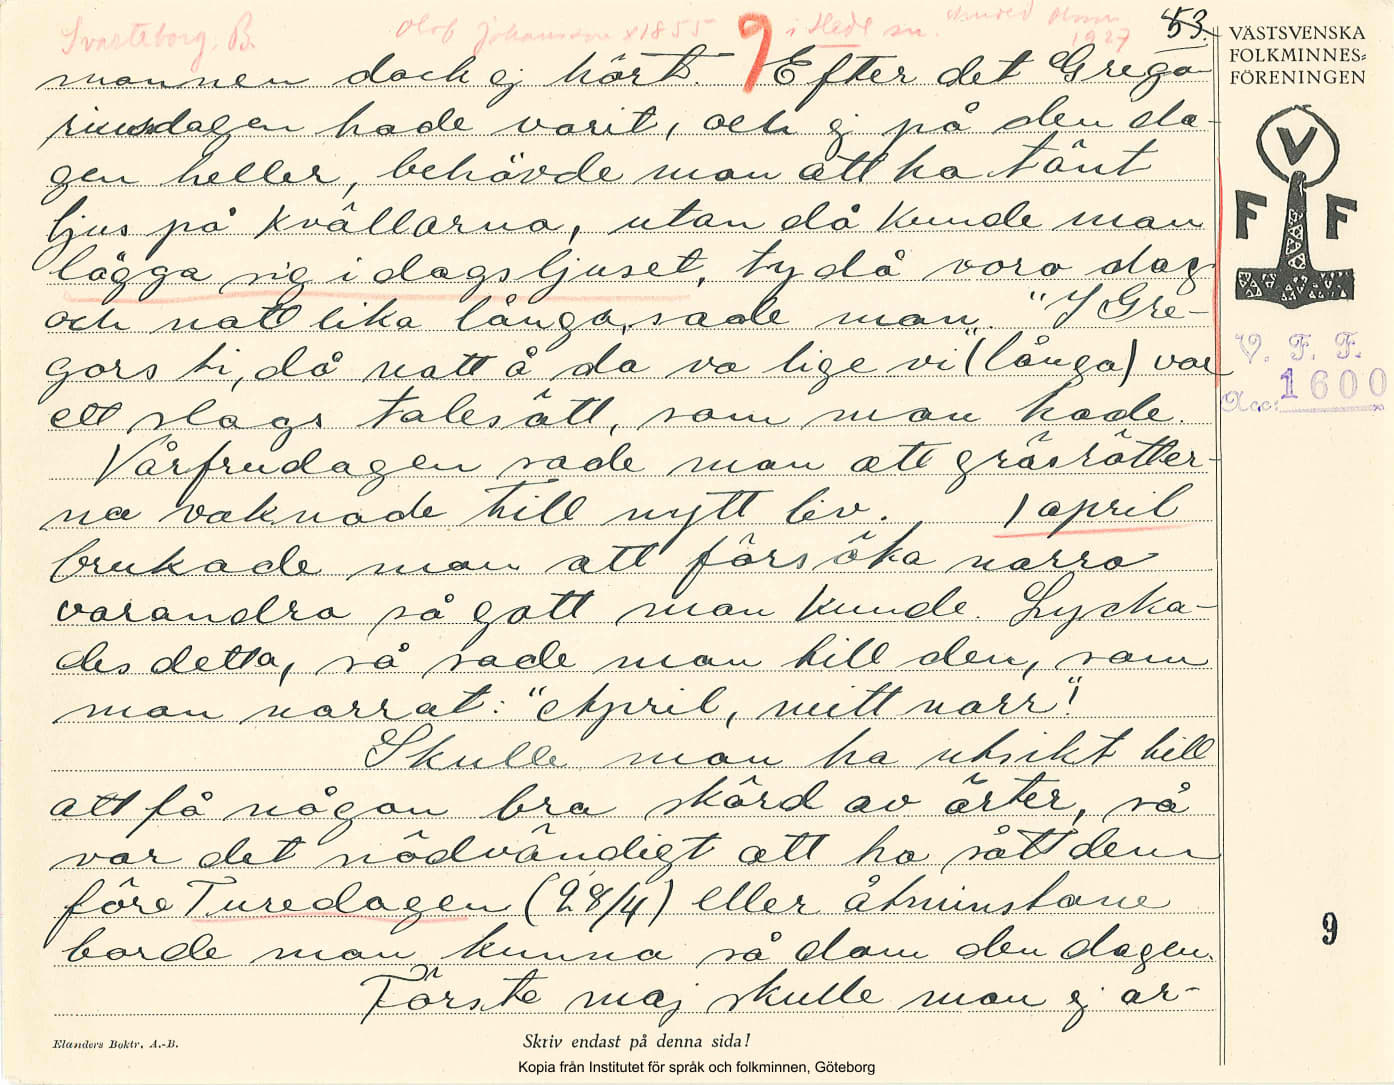 Svarteborg. B. Olof Johansson x1855 9 i Hede sn. 1927 53.
VÄSTSVENSKA
FOLKMINNES-
FÖRENINGEN
V
F F
V. F. F.
Acc: 1600
mannen dock ej hört. Efter det Grego-
riusdagen hade varit, och ej på den da-
gen heller, behövde man att ha tänt
ljus på kvällarna, utan då kunde man
lägga sig i dagsljuset, ty då voro dag
och natt lika långa, sade man. "I Gre-
gors ti, då natt å da va lige vi" (långa) var
ett slags talesätt, som man hade.
Vårfrudagen sade man att gräsrötter-
na vaknade till nytt liv. 1 april
brukade man att försöka narra
varandra så gott man kunde. Lycka-
des detta, så sade man till den, som
man narrat: "April, mitt narr"!
Skulle man ha utsikt till
att få någon bra skörd av ärter, så
var det nödvändigt att ha sått dem
före Turedagen (28/4) eller åtminstone
borde man kunna så dom den dagen.
Förste maj skulle man ej ar-
9
Elanders Boktr. A.-B.
Skriv endast på denna sida!
Kopia från Institutet för språk och folkminnen, Göteborg